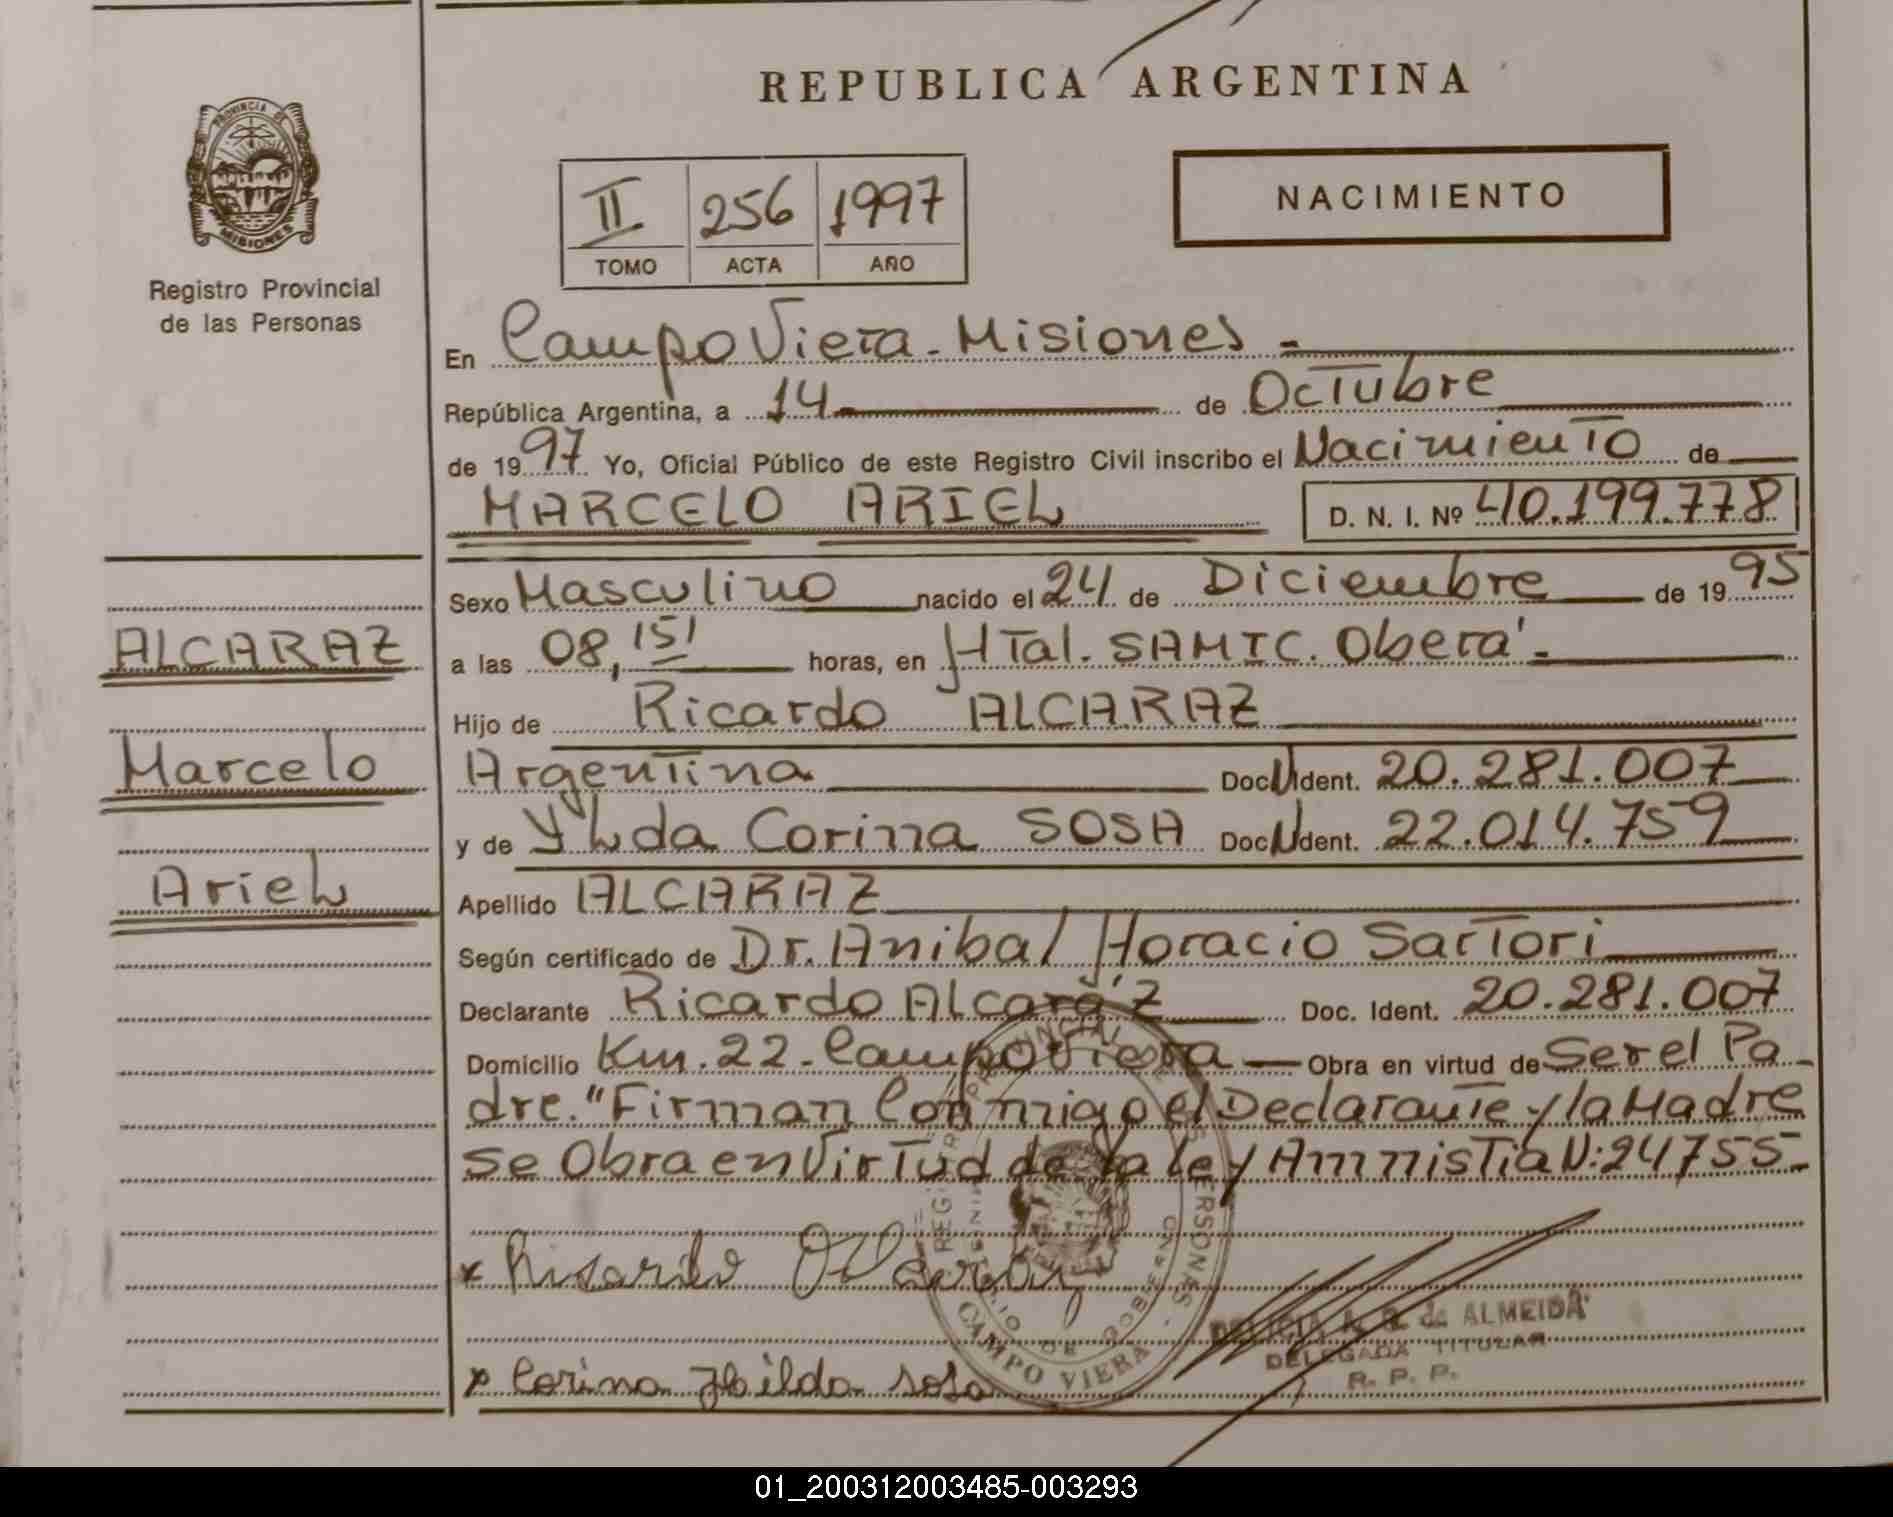 REPUBLICA ARGENTINA
PROVINCIA DE
MISIONES
Registro Provincial
de las Personas
II 256 1997
TOMO ACTA AÑO
NACIMIENTO
En Campo Viera - Misiones -
República Argentina, a 14 de Octubre
de 1997 Yo, Oficial Público de este Registro Civil inscribo el Nacimiento de
MARCELO ARIEL D. N. I. Nº 40.199.778
Sexo Masculino nacido el 24 de Diciembre de 1995
a las 08,15' horas, en HTal. SAMIC. Oberá.-
Hijo de Ricardo ALCARAZ
Argentina Doc N Ident. 20.281.007
y de Ylda Corina SOSA Doc N Ident. 22.014.759
Apellido ALCARAZ
Según certificado de Dr. Anibal Horacio Sartori
Declarante Ricardo Alcaráz Doc. Ident. 20.281.007
Domicilio Km. 22 - Campo Viera — Obra en virtud de Ser el Pa-
dre. "Firman Conmigo el Declarante y la Madre
se Obra en Virtud de la Ley Ammistia N: 24755-
ALCARAZ
Marcelo
Ariel
x Risardo Alcaraz
x Corina Ilda Sosa
de ALMEIDA
DELEGADA TITULAR
R. P. P.
CAMPO VIERA
01_200312003485-003293